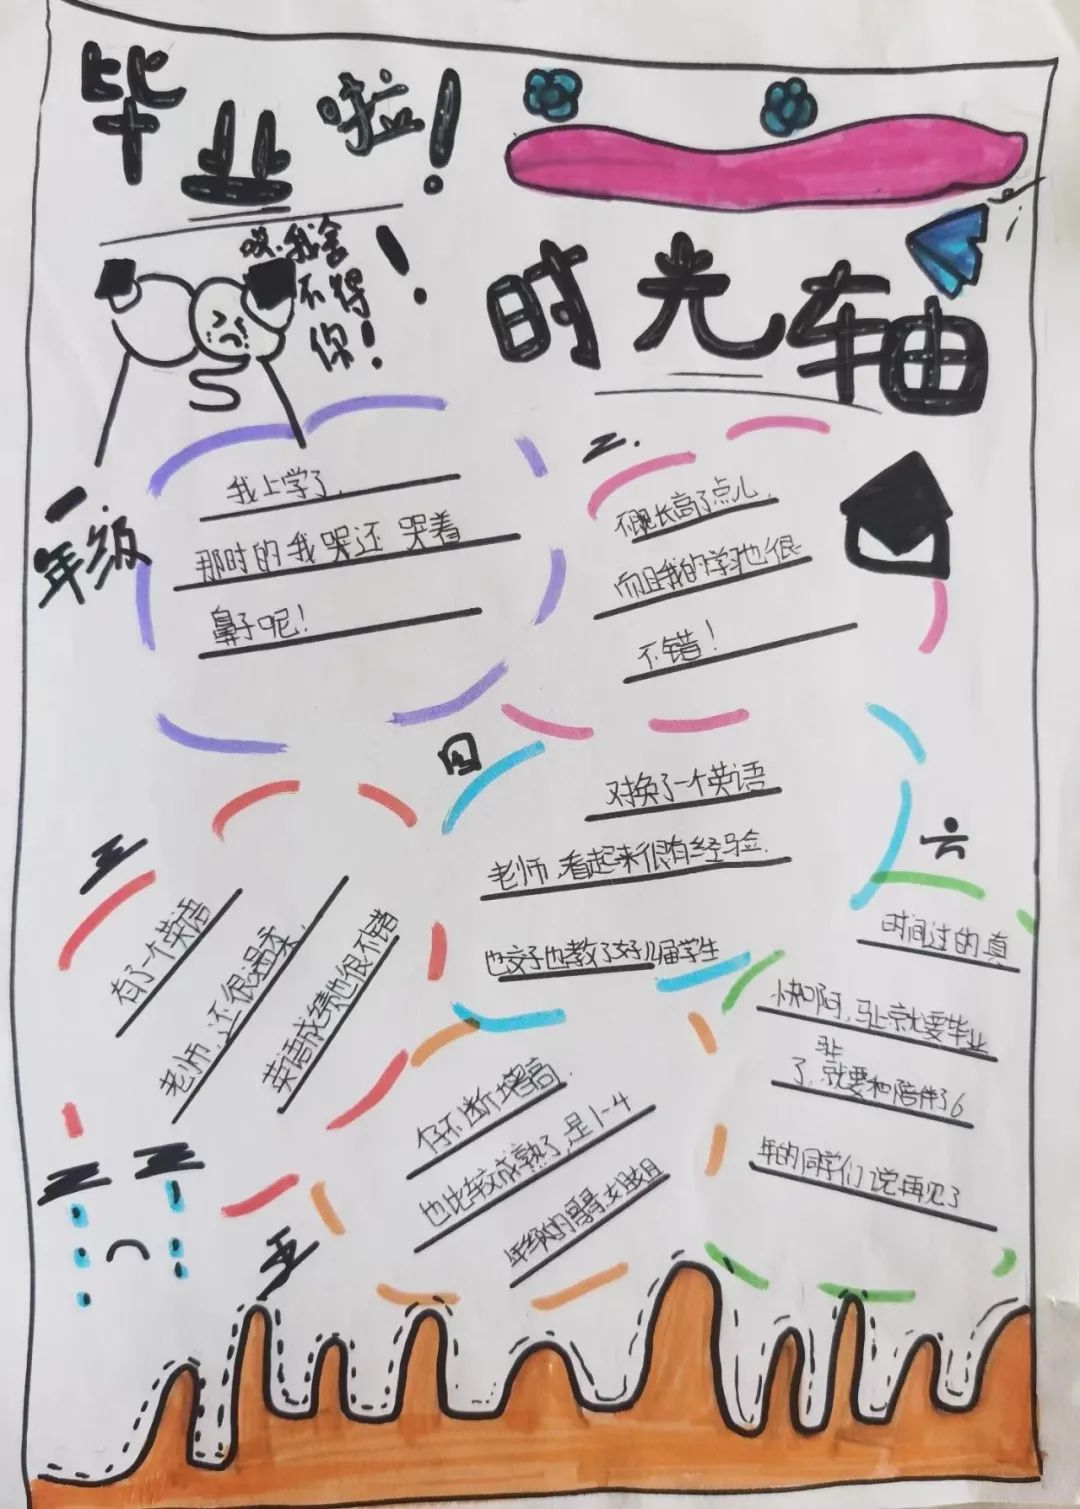 毕业啦！
哎，我舍
不得
你！
时光轴
一
年级
我上学了，
那时的我哭还哭着
鼻子呢！
二.
不
长高了点儿，
而且我的学习也很
不错！
三
有了一个英语
老师，还很温柔，
英语成绩也很不错
四
又换了一个英语
老师，看起来很有经验，
也教了好几届学生
五
个子不断增高，
也比较成熟了，是1-4
年级的哥哥姐姐
六
时间过的真
快啊，马上就要毕业
马上
了，就要和陪伴了6
年的同学们说再见了